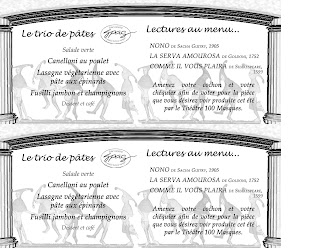 Le trio de pâtes
Salade verte
Canelloni au poulet
Lasagne végétarienne avec
pâte aux épinards
Fusilli jambon et champignons
Dessert et café
Lectures au menu...
NONO DE SACHA GUITRY, 1905
LA SERVA AMOUROSA DE GOLDONI, 1752
COMME IL VOUS PLAIRA DE SHAKESPEARE,
1599
Amenez votre cochon et votre
chéquier afin de voter pour la pièce
que vous désirez voir produite cet été
par le Théâtre 100 Masques.
Le trio de pâtes
Salade verte
Canelloni au poulet
Lasagne végétarienne avec
pâte aux épinards
Fusilli jambon et champignons
Dessert et café
Lectures au menu...
NONO DE SACHA GUITRY, 1905
LA SERVA AMOUROSA DE GOLDONI, 1752
COMME IL VOUS PLAIRA DE SHAKESPEARE,
1599
Amenez votre cochon et votre
chéquier afin de voter pour la pièce
que vous désirez voir produite cet été
par le Théâtre 100 Masques.